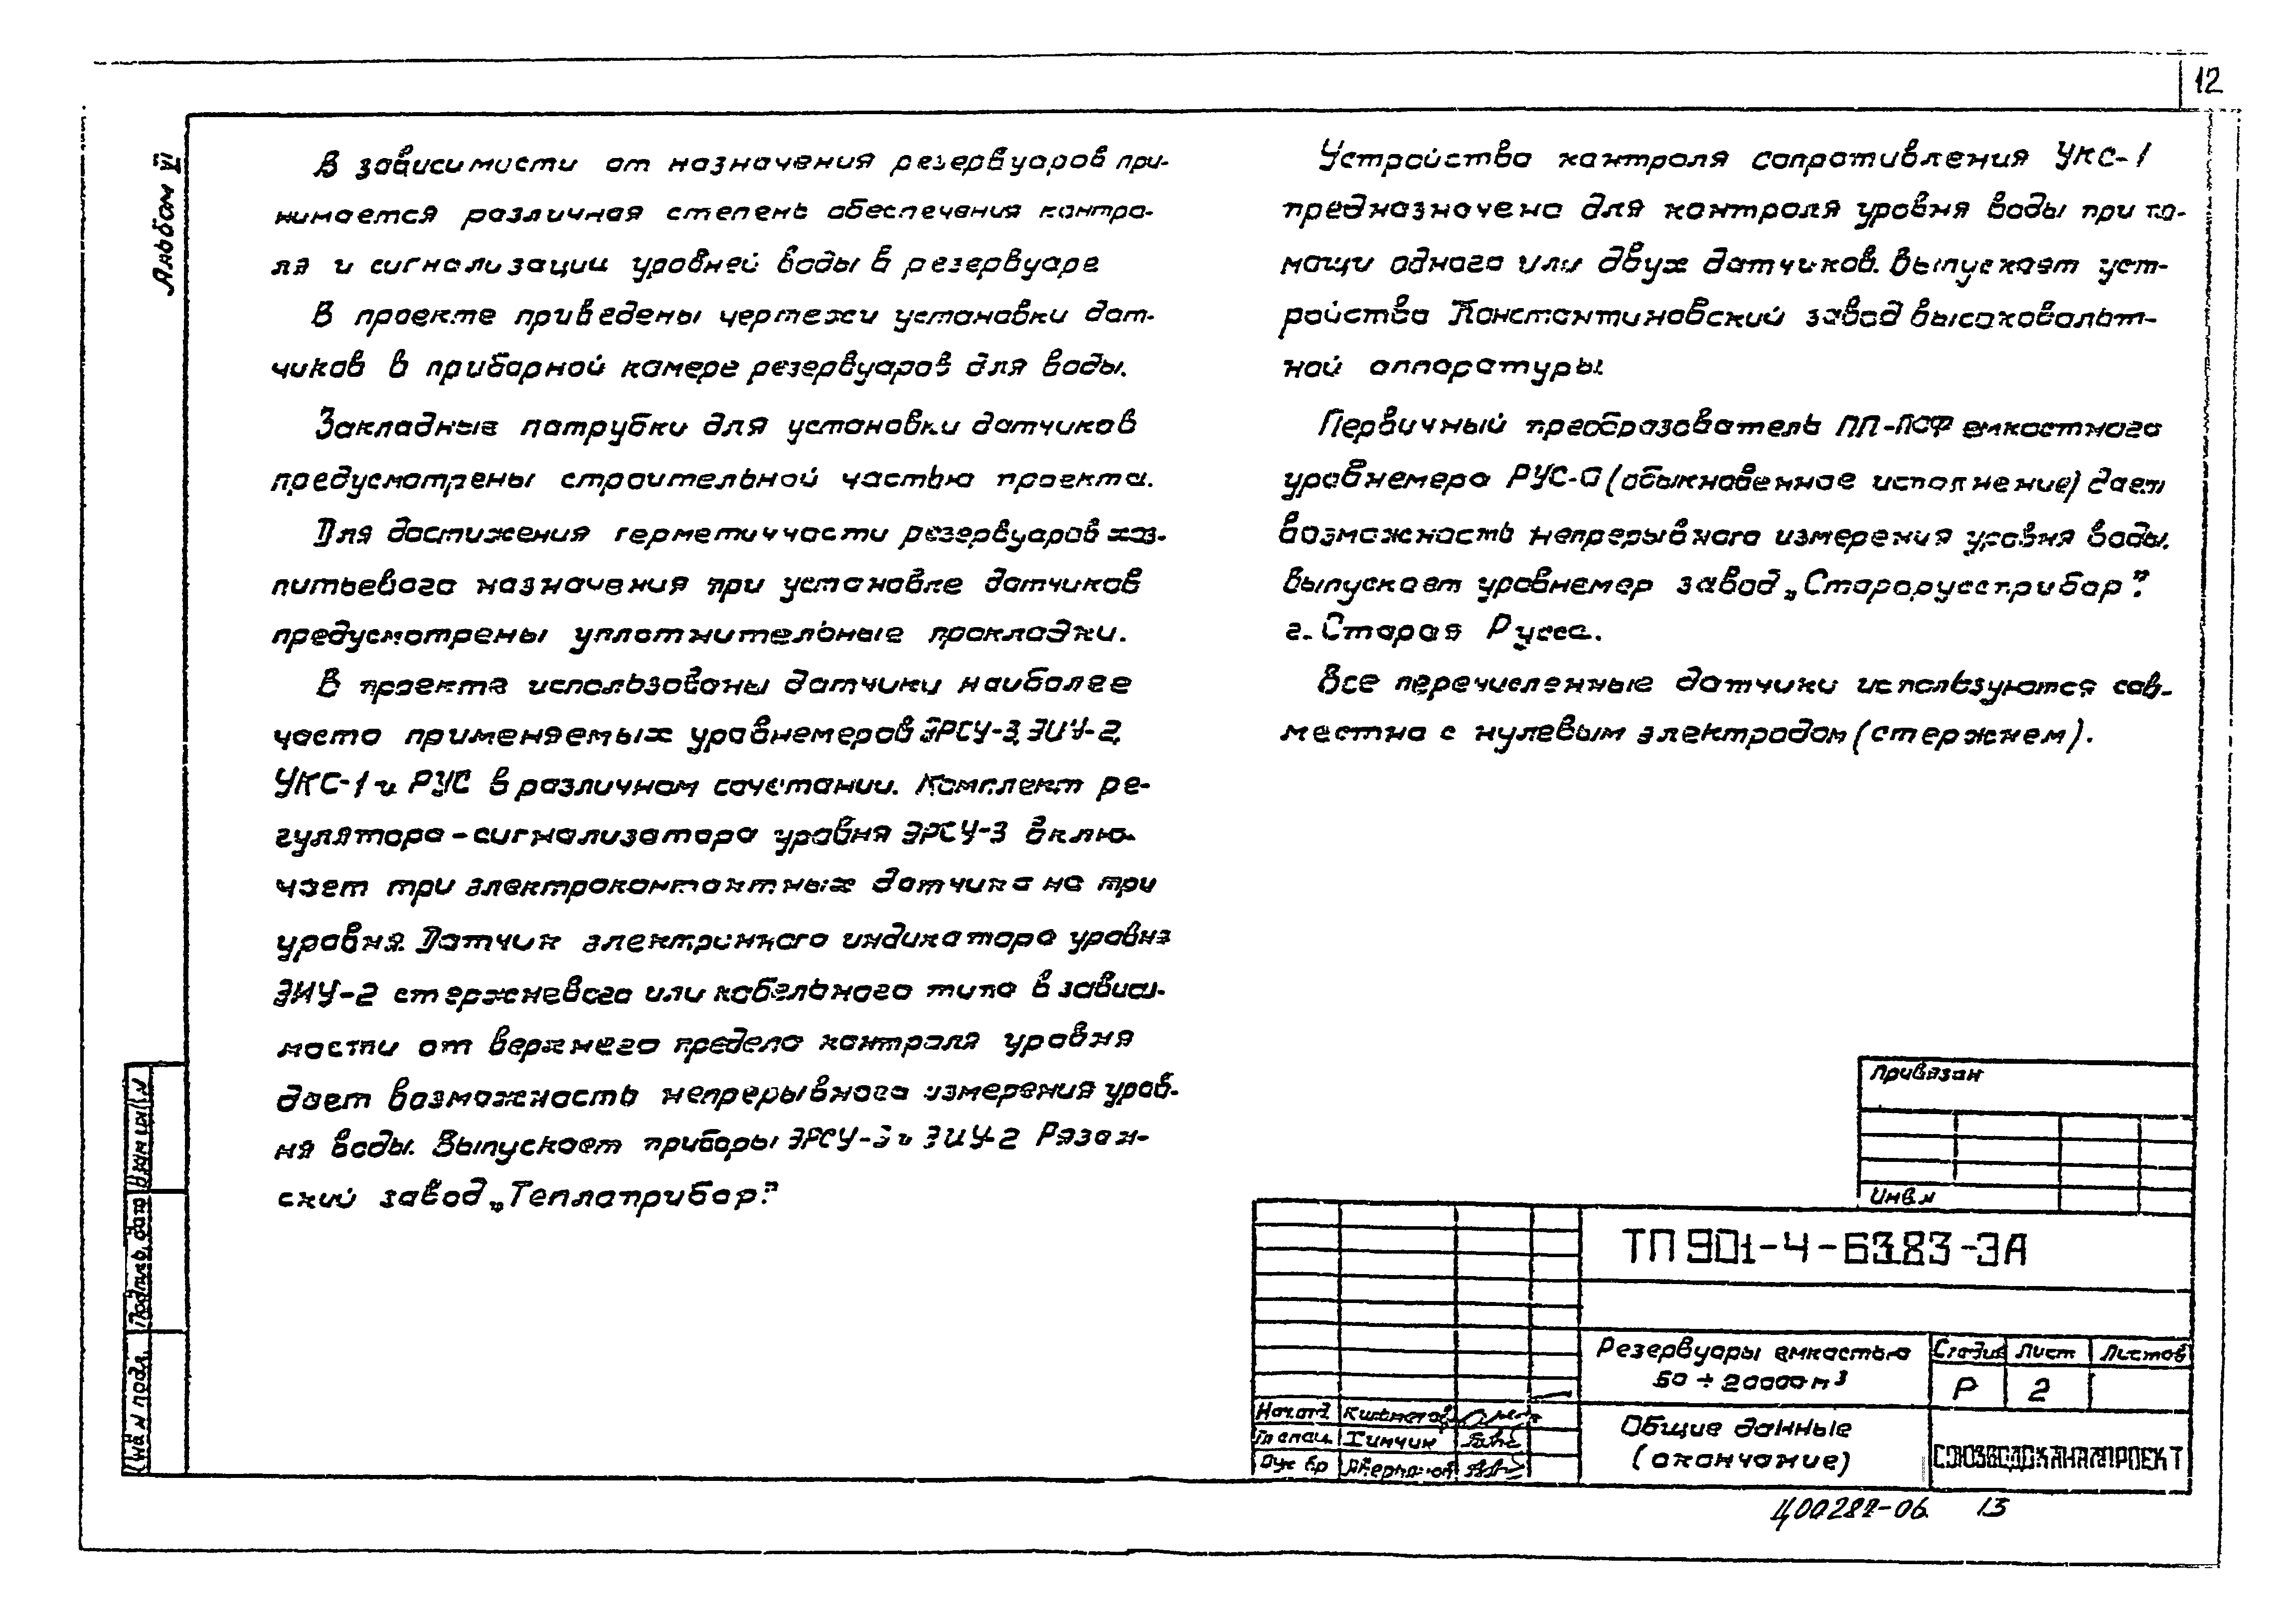 12
Альбом VI
В зависимости от назначения резервуаров при-
нимается различная степень обеспечения контро-
ля и сигнализации уровней воды в резервуаре
В проекте приведены чертежи установки дат-
чиков в приборной камере резервуаров для воды.
Закладные патрубки для установки датчиков
предусмотрены строительной частью проекта.
Для достижения герметичности резервуаров хоз-
питьевого назначения при установке датчиков
предусмотрены уплотнительные прокладки.
В проекте использованы датчики наиболее
часто применяемых уровнемеров ЭРСУ-3, ЭИУ-2,
УКС-1 и РУС в различном сочетании. Комплект ре-
гулятора-сигнализатора уровня ЭРСУ-3 вклю-
чает три электроконтактных датчика на три
уровня. Датчик электронного индикатора уровня
ЭИУ-2 стержневого или кабельного типа в зависи-
мости от верхнего предела контроля уровня
дает возможность непрерывного измерения уров-
ня воды. Выпускает приборы ЭРСУ-3 и ЭИУ-2 Рязан-
ский завод „Теплоприбор".
Устройство контроля сопротивления УКС-1
предназначено для контроля уровня воды при по-
мощи одного или двух датчиков. Выпускает уст-
ройство Константиновский завод высоковольт-
ной аппаратуры.
Первичный преобразователь ПП-ПОФ емкостного
уровнемера РУС-О (обыкновенное исполнение) дает
возможность непрерывного измерения уровня воды.
Выпускает уровнемер завод „Старорусприбор".
г. Старая Русса.
Все перечисленные датчики используются сов-
местно с нулевым электродом (стержнем).
Привязан
Инв.№
ТП 901-4-63.83-ЭА
Резервуары емкостью
50 ÷ 20000 м³
Стадия Лист Листов
Р 2
Общие данные
(окончание)
СОЮЗВОДОКАНАЛПРОЕКТ
Нач.отд
Гл спец. Химчик
Рук бр
Взам инв.№
Подпись, дата
Инв № подл.
Ц00282-06 13